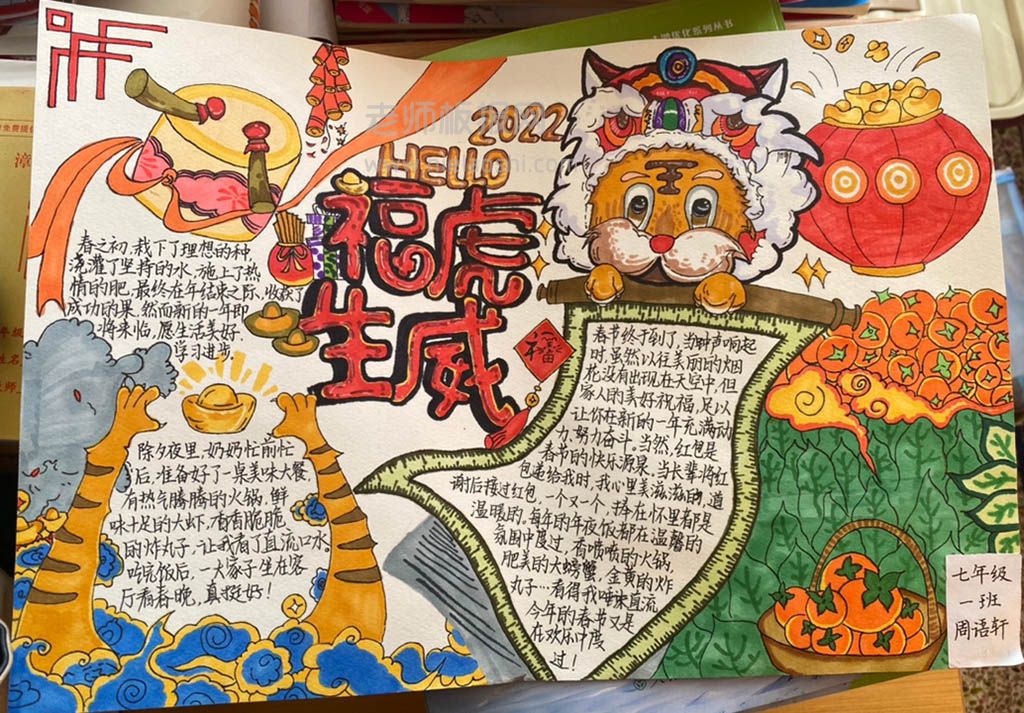 2022
HELLO
福虎
生威
春之初,栽下了理想的种,
浇灌了坚持的水,施上了热
情的肥,最终在年结束之际,收获了
成功的果。然而新的一年即
将来临,愿生活美好,
学习进步
除夕夜里,奶奶忙前忙
后,准备好了一桌美味大餐,
有热气腾腾的火锅,鲜
味十足的大虾,香香脆脆
的炸丸子,让我看了直流口水。
吃完饭后,一大家子坐在客
厅看春晚,真挺好!
福
春节终于到了,当钟声响起
时,虽然以往美丽的烟
花没有出现在天空中,但
家人的美好祝福,足以
让你在新的一年充满动
力,努力奋斗。当然,红包是
春节的快乐源泉,当长辈将红
包递给我时,我心里美滋滋的,道
谢后接过红包,一个又一个,抱在怀里都是
温暖的,每年的年夜饭都在温馨的
氛围中度过,看喷喷的火锅,
肥美的大螃蟹,金黄的炸
丸子…看得我唾沫直流
今年的春节又是
在欢乐中度
过!
七年级
一班
周语轩
老师板报网